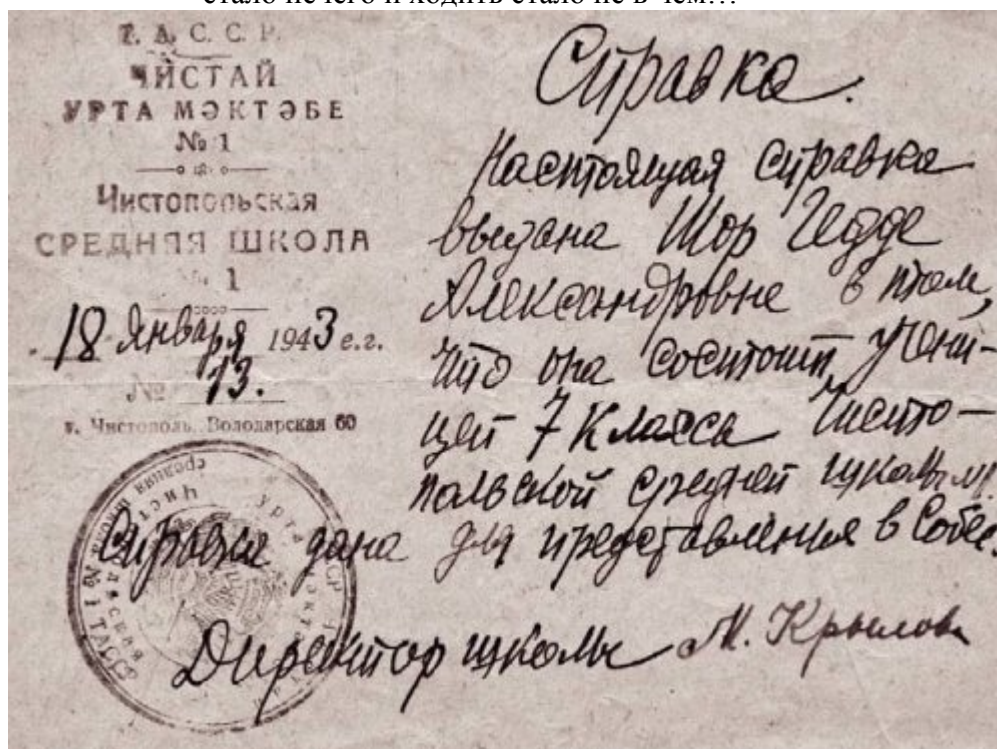 стало нечего и ходить стало не в чем…
Т. А. С. С. Р.
ЧИСТАЙ
УРТА МӘКТӘБЕ
№ 1
Чистопольская
СРЕДНЯЯ ШКОЛА
№ 1
18 Января 1943 е.г.
№ 13.
г. Чистополь, Володарская 60
Справка.
Настоящая справка
выдана Шор Гедде
Александровне в том,
что она состоит учени-
цей 7 класса Чисто-
польской средней школы №1.
Справка дана для представления в Собес.
Директор школы М. Крылова